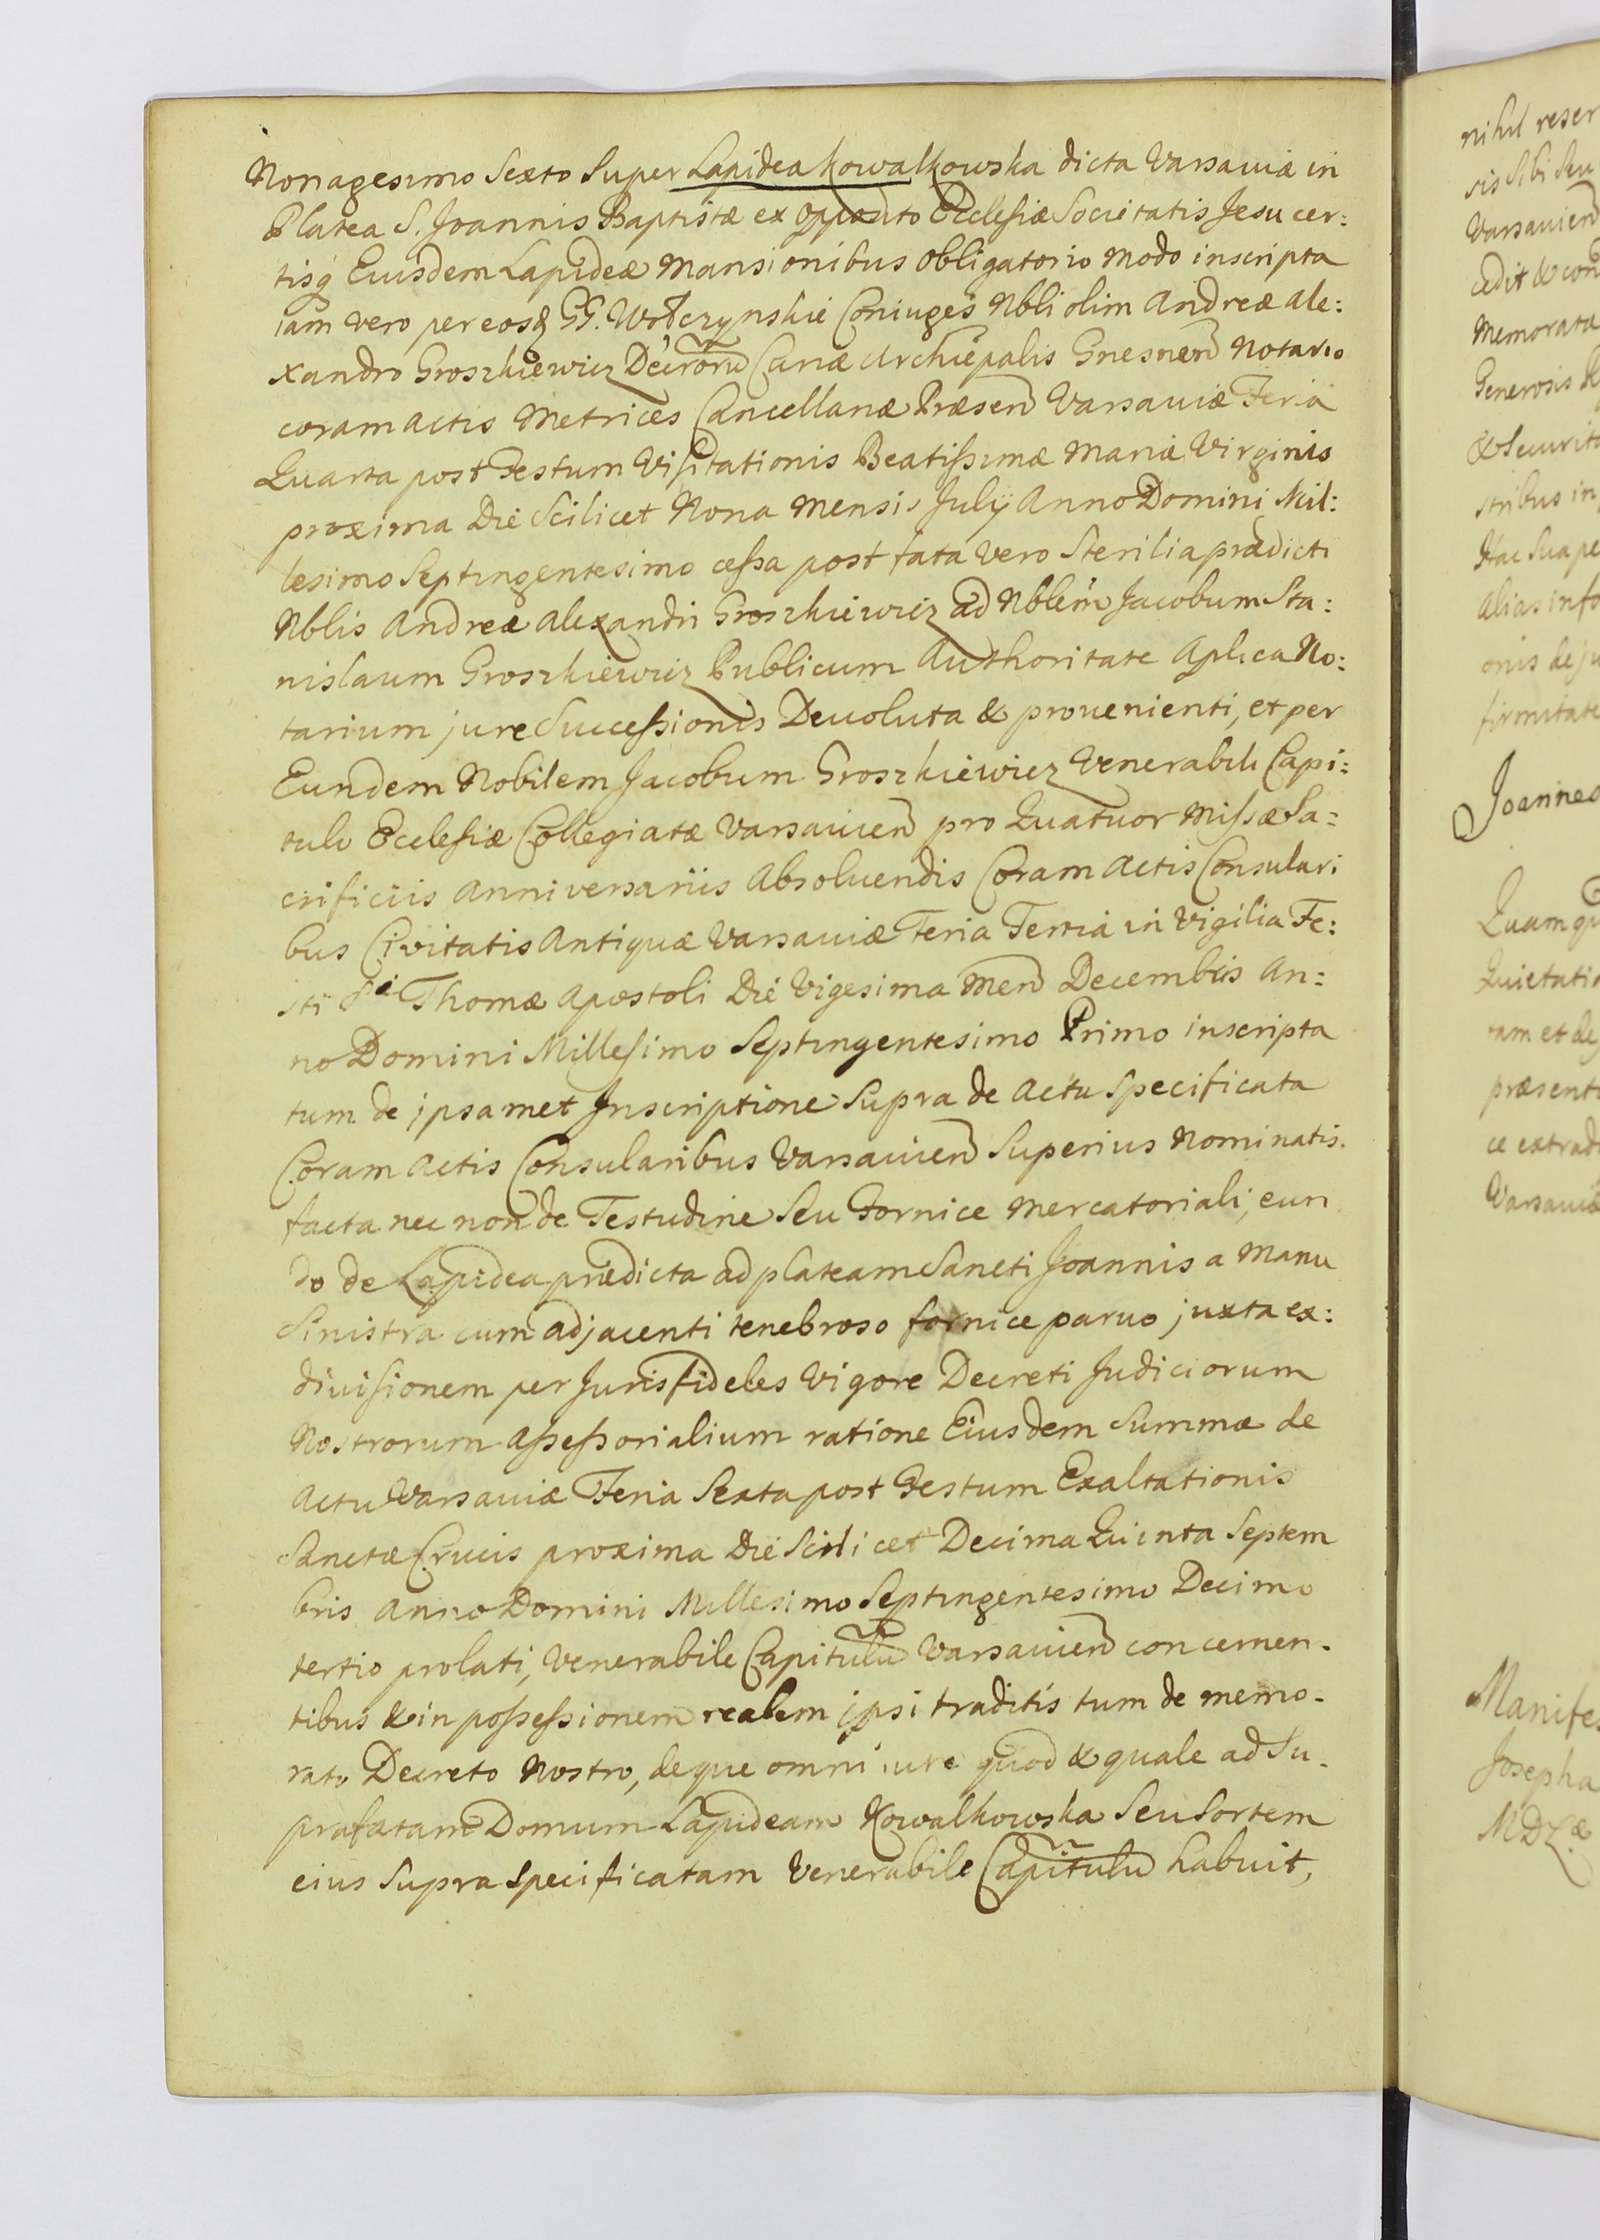 Nonagesimo Sexto Super Lapidea Kowalkowska dicta Varsaviæ in
Platea S. Joannis Baptistæ ex opposito Ecclesiæ Societatis Jesu cer:
tisq Eiusdem Lapideæ Mansionibus obligatorio modo inscripta
iam vero per eosd GG. Wołczynskie Coniuges Nbli olim Andreæ Ale:
xandro Groszkiewicz Decrorũ Curiæ Archiepalis Gnesnen Notario
coram actis Metrices Cancellariæ Præsen Varsaviæ Feria
Quarta post Festum Visitationis Beatissimæ Mariæ Virginis
proxima Die Scilicet Nona Mensis July Anno Domini Mil:
lesimo Septingentesimo cessa post fata vero Sterilia prædicti
Nblis Andreæ Alexandri Groszkiewicz ad Nblem Jacobum Sta:
nislaum Groszkiewicz Publicum Authoritate Aplica No:
tarium jure Successionis Devoluta & provenienti, et per
Eundem Nobilem Jacobum Groszkiewicz Venerabili Capi:
tulo Ecclesiæ Collegiatæ Varsavien pro Quatuor Missæ Sa:
crificiis anniversariis Absolvendis Coram Actis Consulari
bus Civitatis Antiquæ Varsaviæ Feria Tertia in Vigilia Fe:
sti Si Thomæ Apostoli Die Vigesima Men Decembris An:
no Domini Millesimo Septingentesimo Primo inscripta
tum de ipsamet Inscriptione Supra de Actu Specificata
Coram Actis Consularibus Varsavien Superius Nominatis.
facta nec non de Testudine Seu Fornice Mercatoriali, eun
do de Lapidea prædicta ad plateam Sancti Joannis a manu
Sinistra cum adjacenti tenebroso fornice parvo juxta ex:
divisionem per Jurisfideles Vigore Decreti Judiciorum
Nostrorum Assessorialium ratione Eiusdem Summæ de
Actu Varsaviæ Feria Sexta post Festum Exaltationis
Sanctæ Crucis proxima Die Scilicet Decima Quinta Septem
bris Anno Domini Millesimo Septingentesimo Decimo
tertio prolati, Venerabile Capitulũ Varsavien concernen.
tibus & in possessionem realem ipsi traditis tum de memo.
rato Decreto Nostro, deque omni iure quod & quale ad Su.
prafatam Domum Lapideam Kowalkowska Seu Sortem
eius Supra Specificatam Venerabile Capitulũ habuit,
nihil reser
sis Sibi Seu
Varsavien
cedit & con
Memorata
Generosis
& Securit
stribus in
Hac Sua pe
Alias info
onis de ju
firmitate
Joannes
Quam
Quietatio
ram et de
præsent
ce extrad
Varsaviæ
Manifes
Josepha